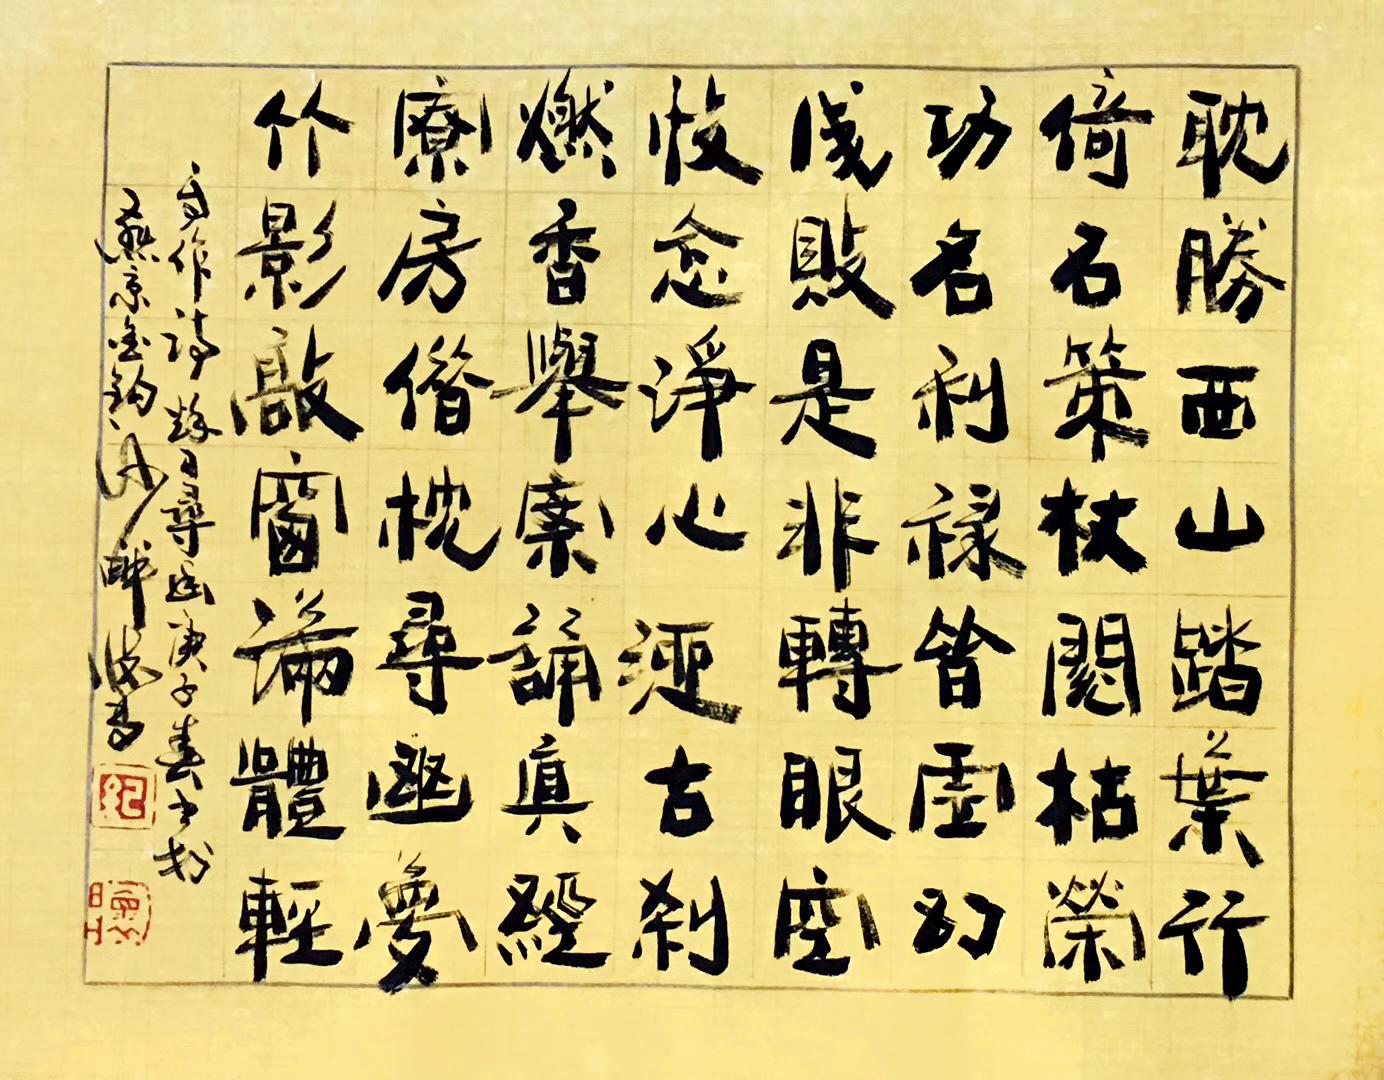 耽勝西山踏葉行
倚石策杖閱枯榮
功名利祿皆虛幻
成敗是非轉眼空
收念淨心逕古刹
燃香舉案誦真經
寮房借枕尋幽夢
竹影敲窗滿體輕
自作詩 尋幽庚子春月於
燕京